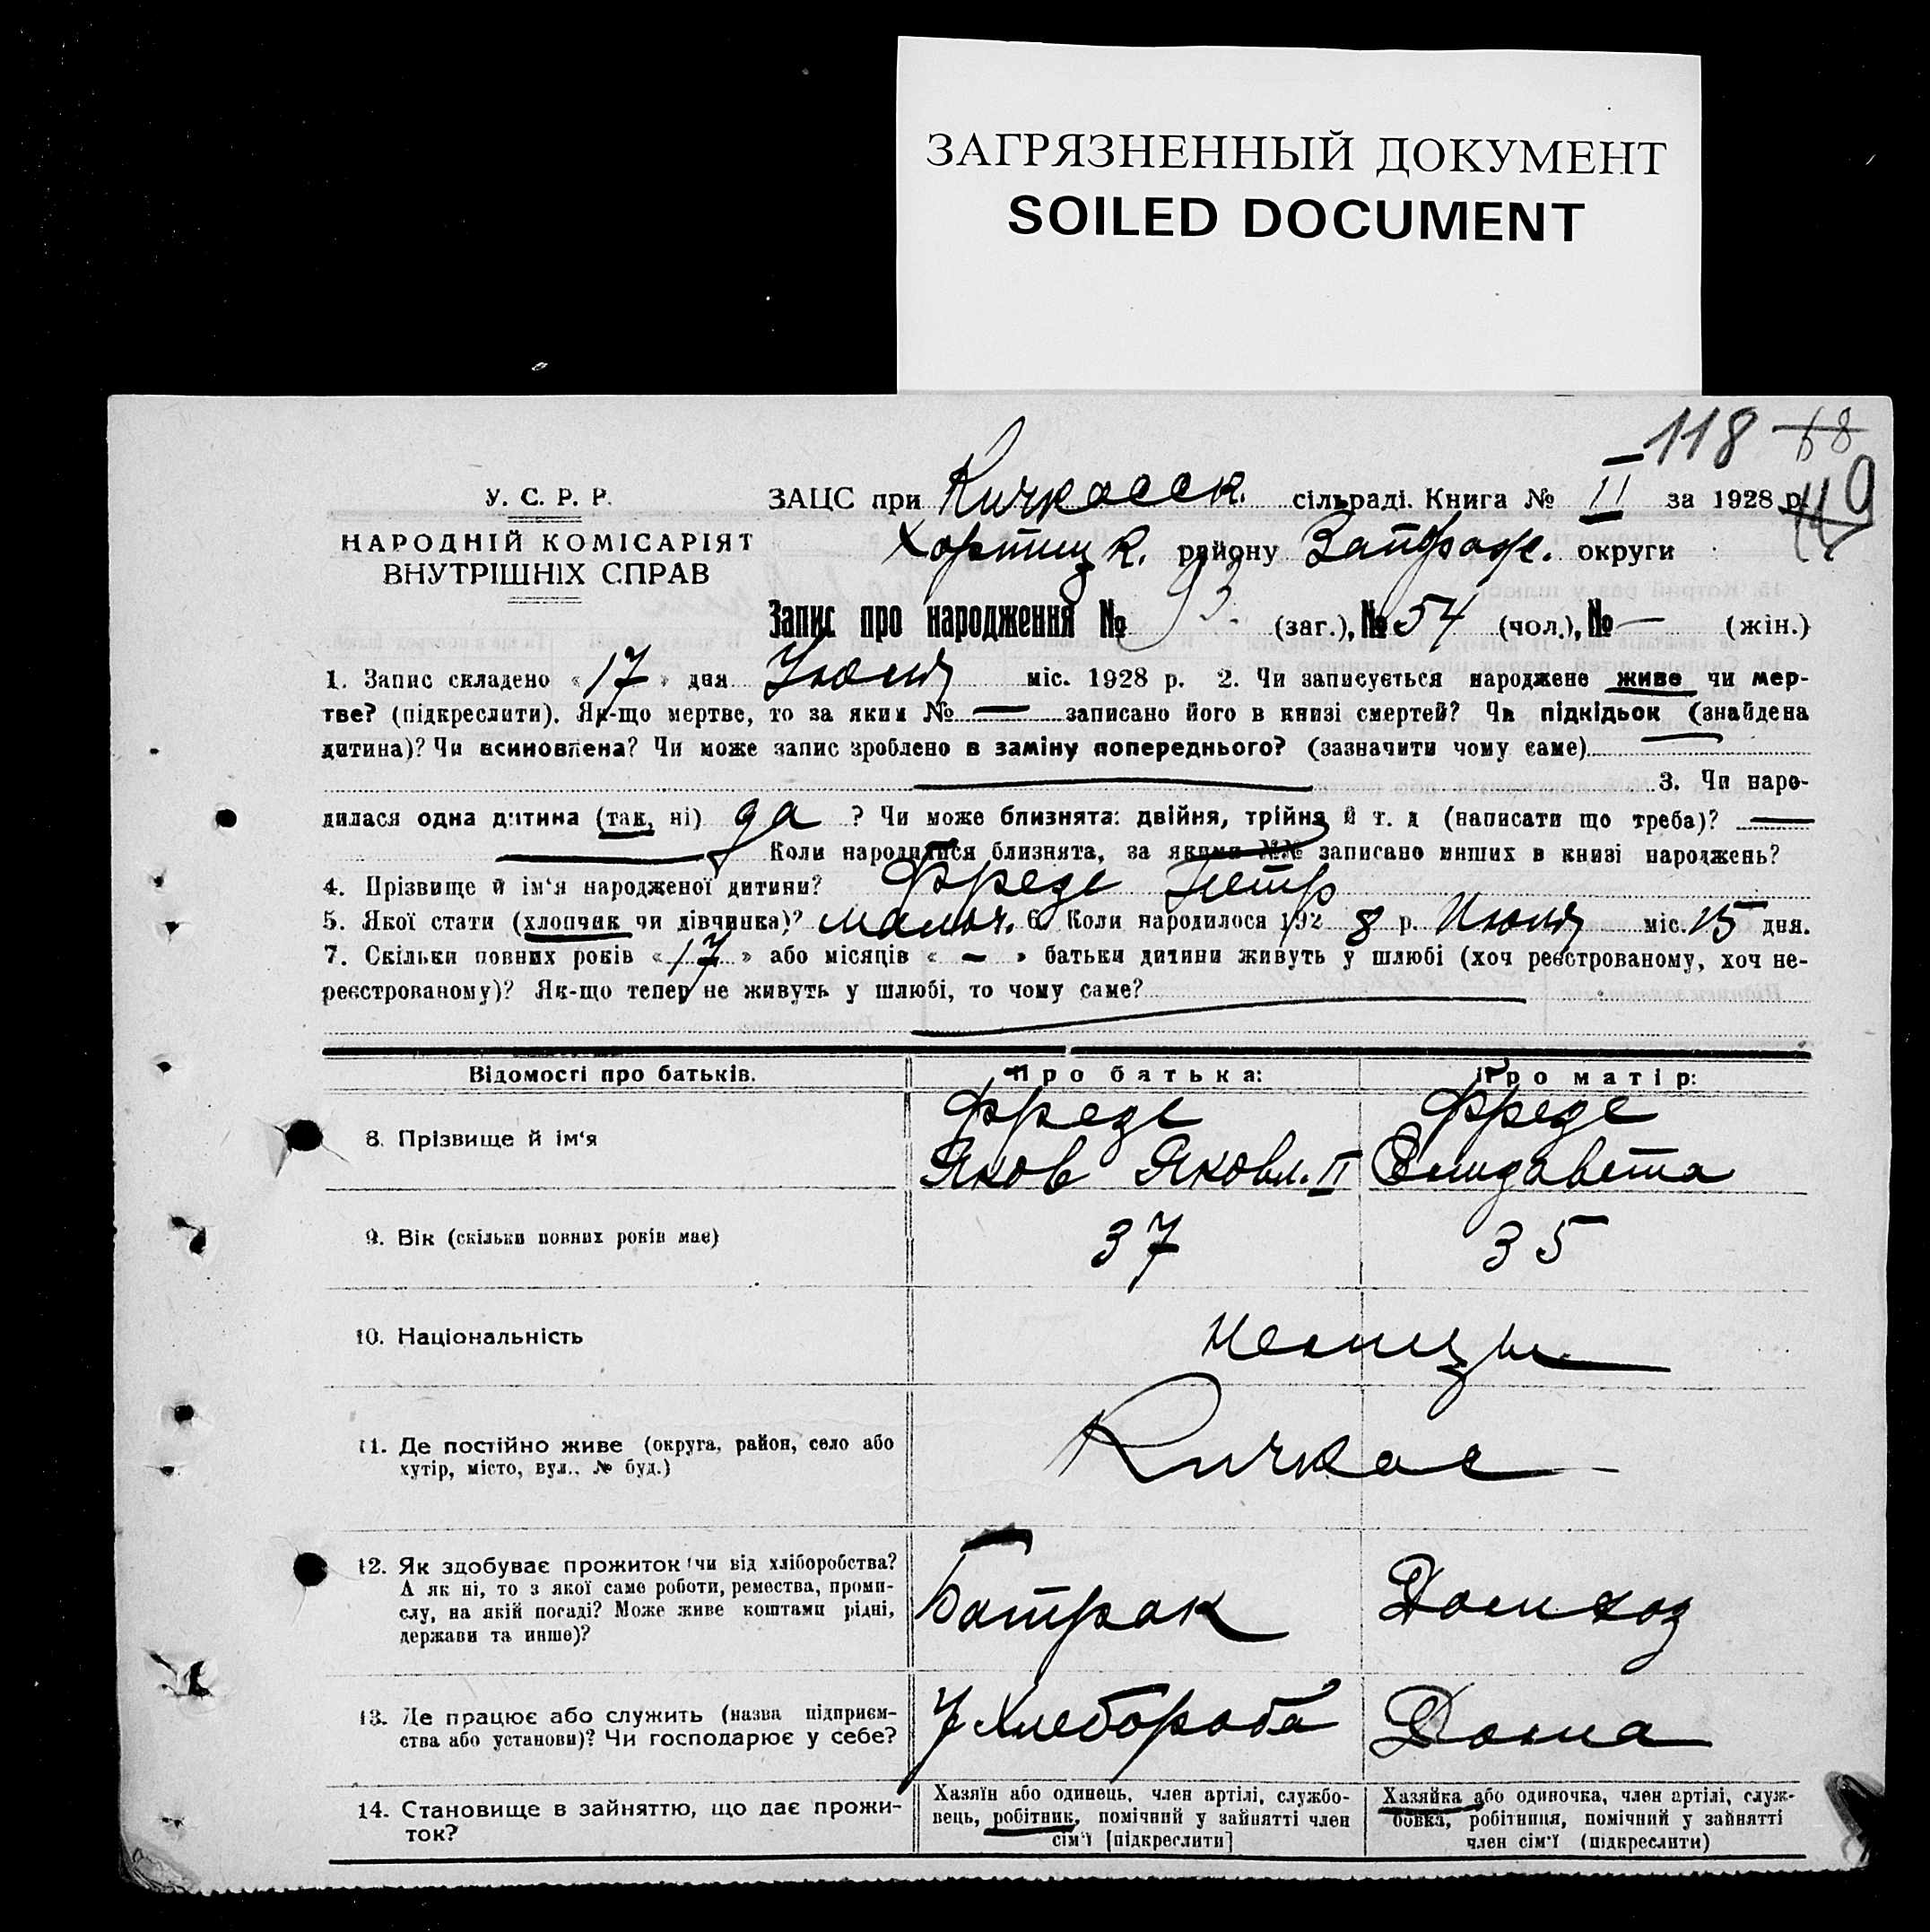 ЗАГРЯЗНЕННЫЙ ДОКУМЕНТ
SOILED DOCUMENT
118 68
119
У. С. Р. Р.
НАРОДНІЙ КОМІСАРІЯТ
ВНУТРІШНІХ СПРАВ
ЗАЦС при Кичкасск. сільраді. Книга № II за 1928 р.
Хортицк. району Запорож. округи
Запис про народження № 93. (заг.), № 54 (чол.), № — (жін.)
1. Запис складено «17» дня Июня міс. 1928 р. 2. Чи записується народжене живе чи мер-
тве? (підкреслити). Як-що мертве, то за яким № — записано його в книзі смертей? Чи підкідьок (знайдена
дитина)? Чи всиновлена? Чи може запис зроблено в заміну попереднього? (зазначити чому саме)
3. Чи наро-
дилася одна дитина (так, ні) да ? Чи може близнята: двійня, трійня й т. д (написати що треба)? —
Коли народилися близнята, за якими №№ записано инших в книзі народжень?
4. Прізвище й ім'я народженої дитини? Фрезе Петр
5. Якої стати (хлопчик чи дівчинка)? мальч. 6. Коли народилося 192 8 р. Июня міс. 15 дня.
7. Скільки повних років «17» або місяців « — » батьки дитини живуть у шлюбі (хоч реєстрованому, хоч не-
реєстрованому)? Як-що тепер не живуть у шлюбі, то чому саме?
Відомості про батьків. Про батька: Про матір:
8. Прізвище й ім'я Фрезе Яков Яковл. II Фрезе Елизавета
9. Вік (скільки повних років має) 37 35
10. Національність Немцы
11. Де постійно живе (округа, район, село або
хутір, місто, вул., № буд.) Кичкас
12. Як здобуває прожиток (чи від хліборобства?
А як ні, то з якої саме роботи, ремества, проми-
слу, на якій посаді? Може живе коштами рідні,
держави та инше)? Батрак Домхоз
13. Де працює або служить (назва підприєм-
ства або установи)? Чи господарює у себе? У Хлебороба Дома
14. Становище в зайняттю, що дає прожи-
ток?
Хазяїн або одинець, член артілі, службо-
вець, робітник, помічний у зайнятті член
сім'ї [підкреслити]
Хазяйка або одиночка, член артілі, служ-
бовка, робітниця, помічний у зайнятті
член сім'ї (підкреслити)